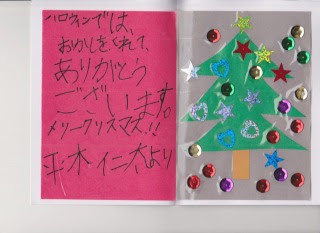 ハロウィンでは、
おかしをくれて、
ありがとう
ございます。
メリークリスマス!!
平木 仁太より